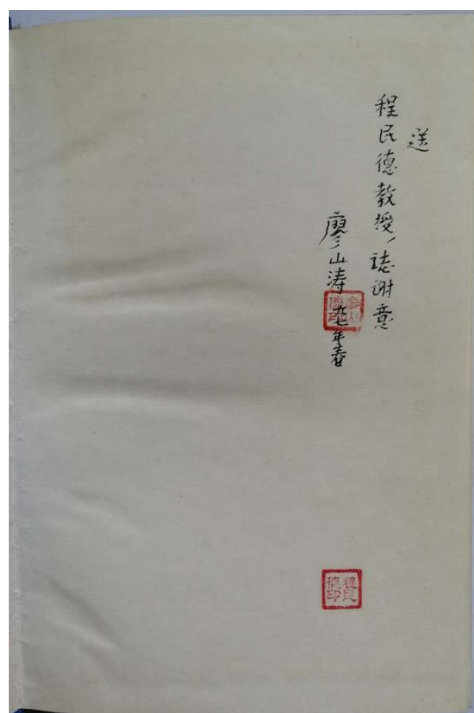 送
程民德教授，誌谢意
廖山涛 九七年春
程民德印